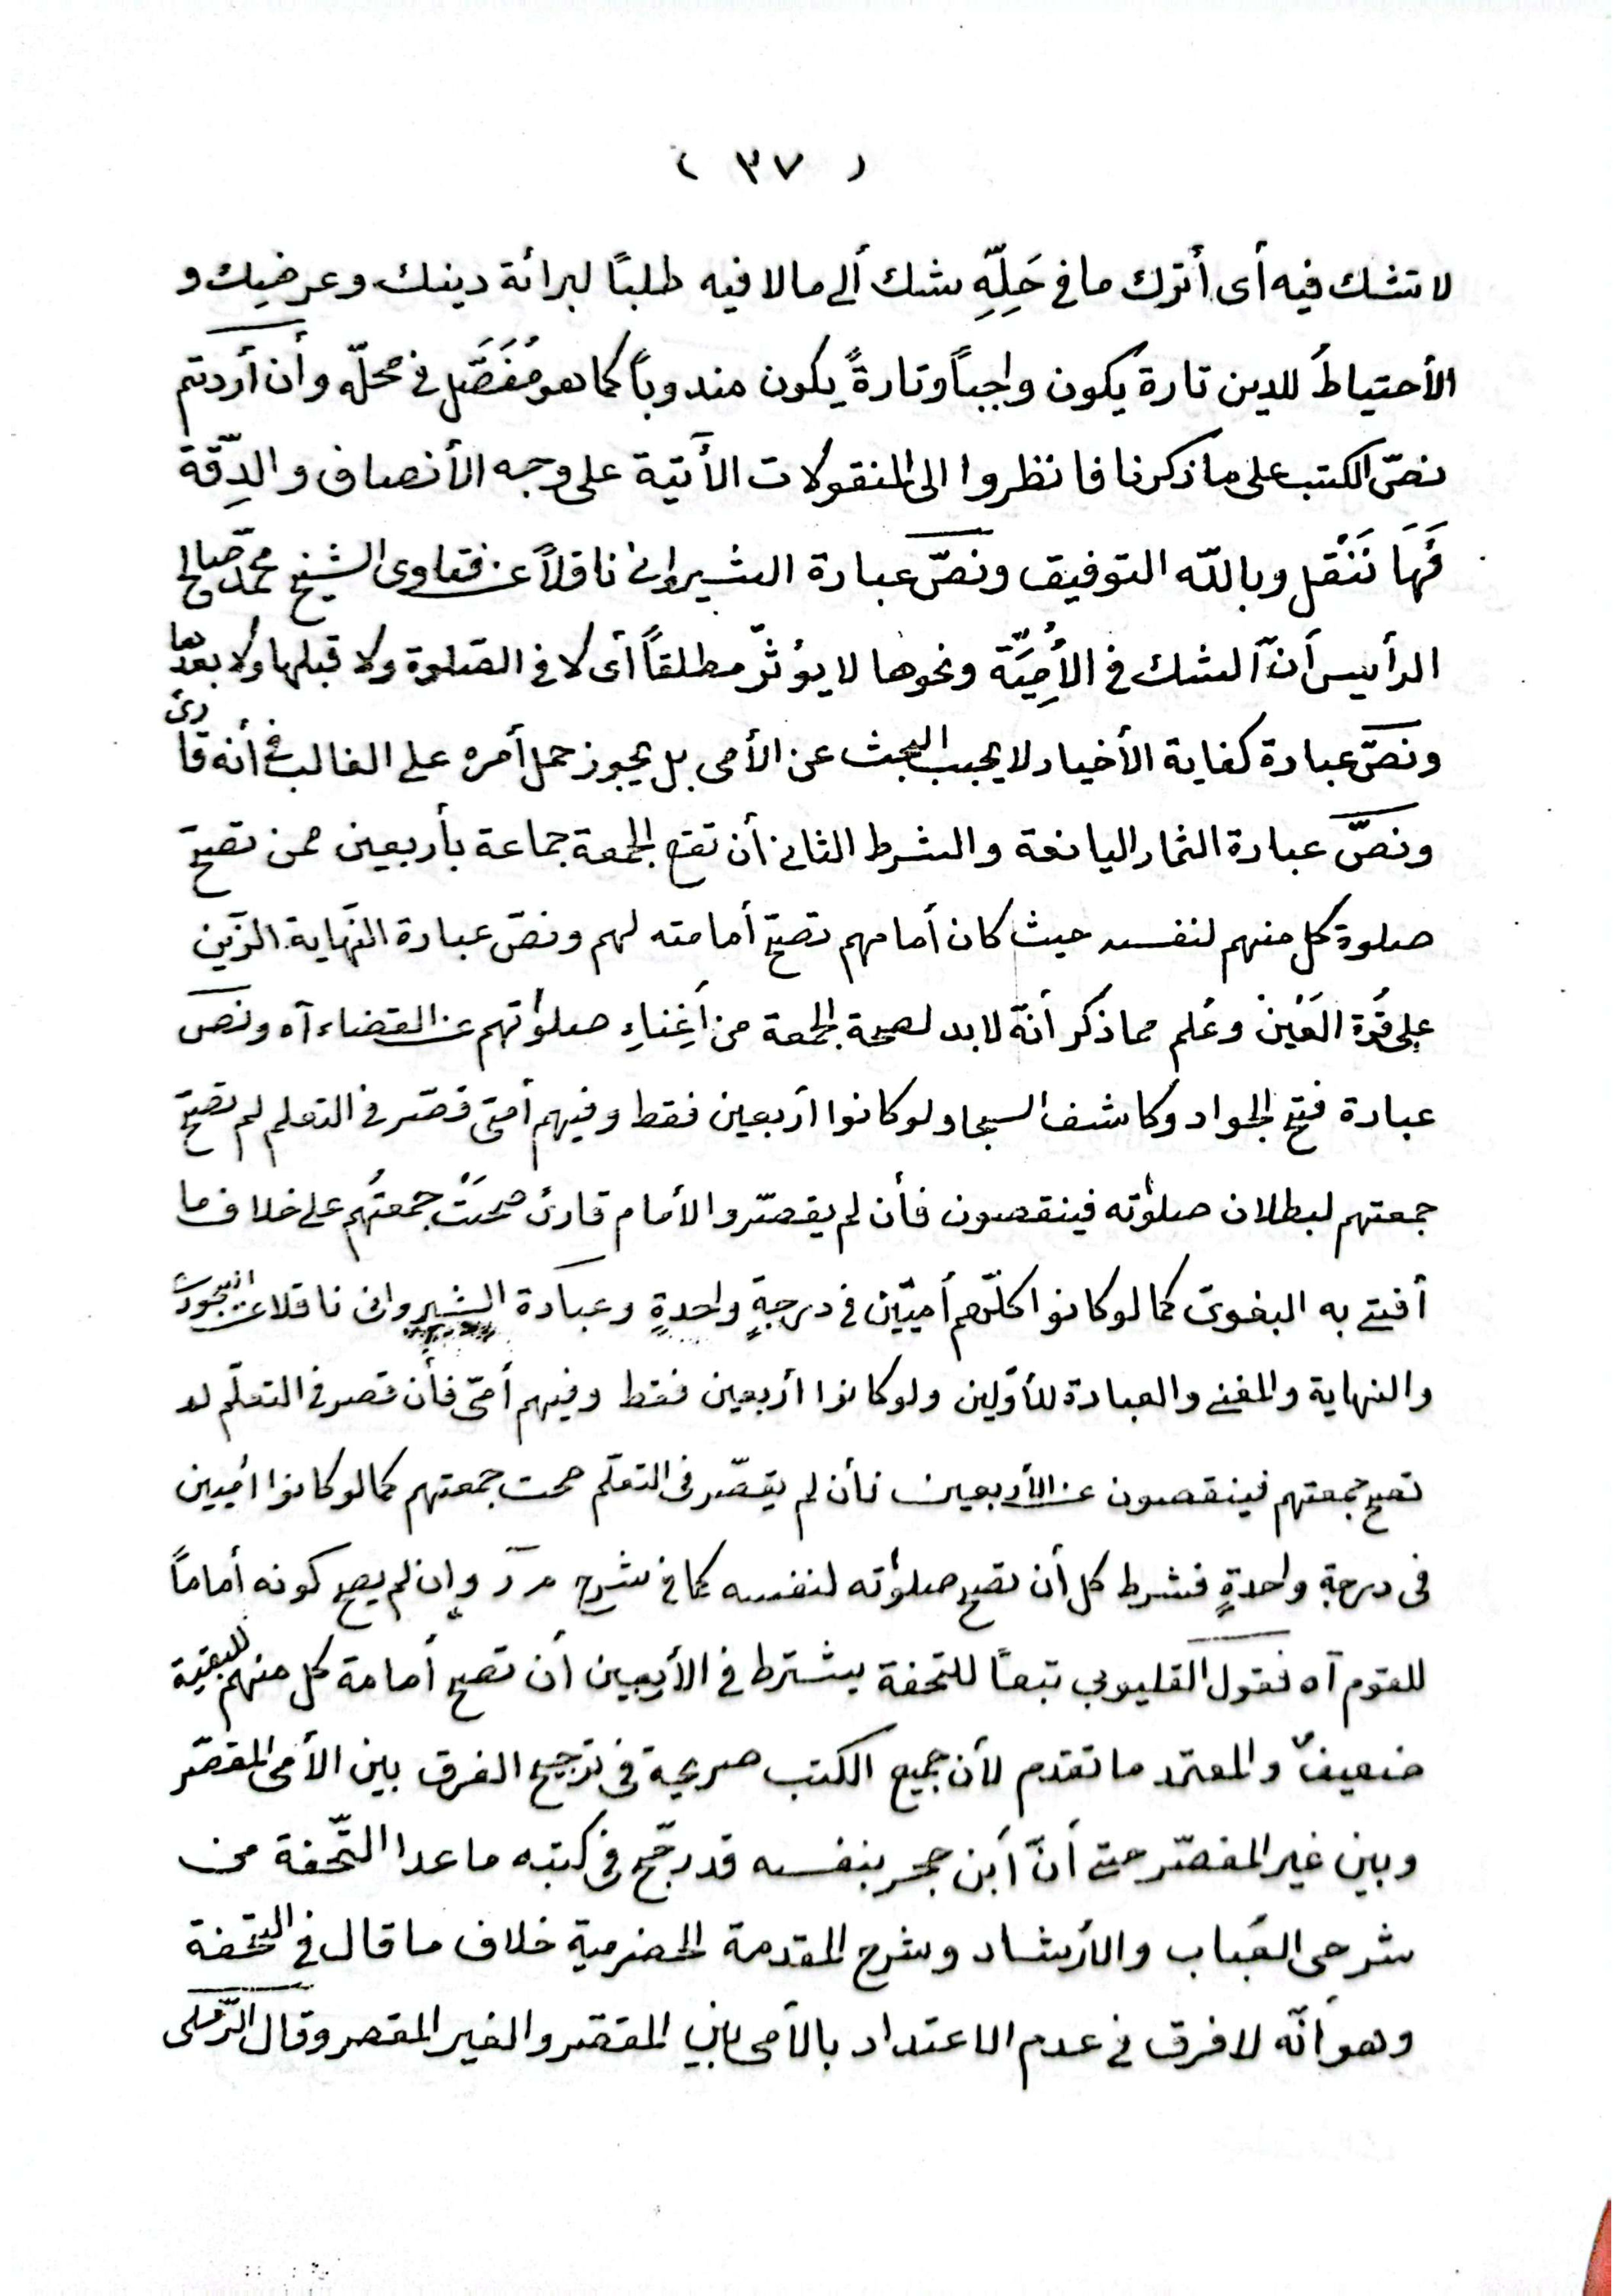 ( ٣٧ )
لا تشك فيه أى أترك ما فى حَلِّهِ شك ألى مالا فيه طلبًا لبرائة دينك وعرضيك و
الأحتياطُ للدين تارة يكون واجباً وتارةً يكون مندوباً كما هو مُفَصَّل فى محلّه وأن أردتم
نصّ الكتب على ما ذكرنا فانظروا الى المنقولات الأتية على وجه الأنصاف والدِّقة
فَهَا نَنْقل وبالله التوفيق ونصّ عبارة الشيروانى ناقلاً عن فتاوى الشيخ محمد صالح
الرأيس أنّ الشك فى الأُمِّيَّة ونحوها لا يؤثّر مطلقاً أى لا فى الصلوة ولا قبلها ولا بعدها
ونصّ عبارة كفاية الأخيار لا يجب البحث عن الأمى بل يجوز حمل أمره على الغالب فى أنه قارئ
ونصّ عبارة الثمار اليانعة والشرط الثانى أن تقع الجمعة جماعة بأربعين ممن تصحّ
صلوة كل منهم لنفسه حيث كان أمامهم تصحّ أمامته لهم ونصّ عبارة النّهاية الزّين
على قُرّة العَيْن وعُلم مما ذكر أنّه لابد لصحة الجمعة من أَغِناءِ صلوٰتهم عن القضاء آه ونصّ
عبارة فتح الجواد وكاشف السجا ولو كانوا أربعين فقط وفيهم أمىّ قصّر فى التعلم لم تصحّ
جمعتهم لبطلان صلوٰته فينقصون فأن لم يقصّر والأمام قارئ صحّتْ جمعتُهم على خلاف ما
أفتى به البغوىّ كما لو كانوا كلّهم أميّين فى درجةٍ واحدةٍ وعبارة الشيروانى ناقلا عن
والنهاية والمغنى والعبارة للأوّلين ولو كانوا أربعين فقط وفيهم أمىّ فأن قصر فى التعلّم لم
تصح جمعتهم فينقصون عن الأربعين فأن لم يقصّر فى التعلّم صحت جمعتهم كما لو كانوا أميين
فى درجة واحدةٍ فشرط كل أن تصح صلوٰته لنفسه كما فى شرح م ر وإن لم يصح كونه أماماً
للقوم آه فقول القليوبى تبعًا للتحفة يشترط فى الأربعين أن تصح أمامة كل منهم للبقية
ضعيفٌ والمعتمد ما تقدم لأن جميع الكتب صريحة فى ترجيح الفرق بين الأمى المقصّر
وبين غير المقصّر حتى أنّ أبن حجر بنفسه قد رجّح فى كتبه ما عدا التّحفة من
شرحى العُباب والأرشاد وشرح المقدمة الحضرمية خلاف ما قال فى التحفة
وهو أنّه لا فرق فى عدم الاعتداد بالأمى بين المقصّر والغير المقصر وقال الرّملى